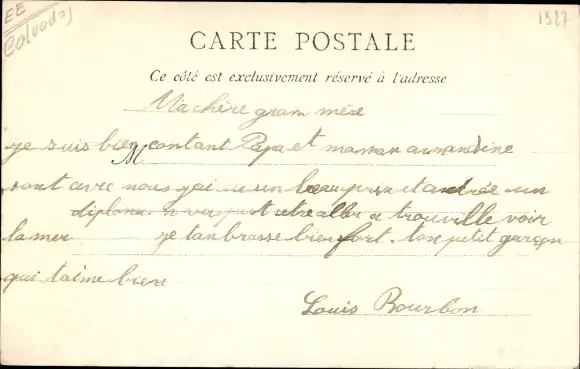 EE
Calvados
1927
CARTE POSTALE
Ce côté est exclusivement réservé à l'adresse
Ma chère gram mère
je suis bien contant Papa et maman amandine
M
sont avec nous j'ai u un beau prix et andrée un
diplome nous etre aller a trouville voir
la mer je tanbrasse bien fort. ton petit garçon
qui t'aime bien
Louis Bourbon